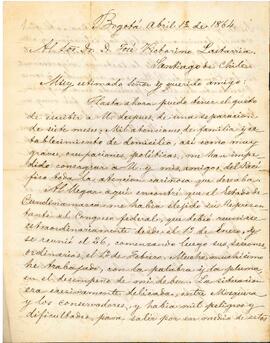 Bogotá Abril 12 de 1864.
Al Sor. Dr. D. José Victorino Lastarria
Santiago de Chile
Muy estimado señor y querido amigo.
Hasta ahora puedo tener el gusto
de escribir a U. despues de una separacion
de siete meses. Mil atenciones de familia y es-
tablecimiento de domicilio, así como muy
graves, ocupaciones políticas, me han im-
pedido consagrar a U. y mis amigos del Pací-
fico toda la atencion que deseaba.
Al llegar aquí encontré que el Estado de
Cundinamarca me habia elejido su Represen-
tante al Congreso federal, que debió reunirse
extraordinariamente desde el 1º de Enero, i
se reunió el 26, comenzando luego sus sesiones
ordinarias, el 1º de Febrero. Mucho, muchísimo
he trabajado, con la palabra y la pluma
en el desempeño de mi deber. La situacion
era excesivamente delicada, entre Mosquera
y los conservadores, y habia mil peligros y
dificultades, para salir por en medio de estos